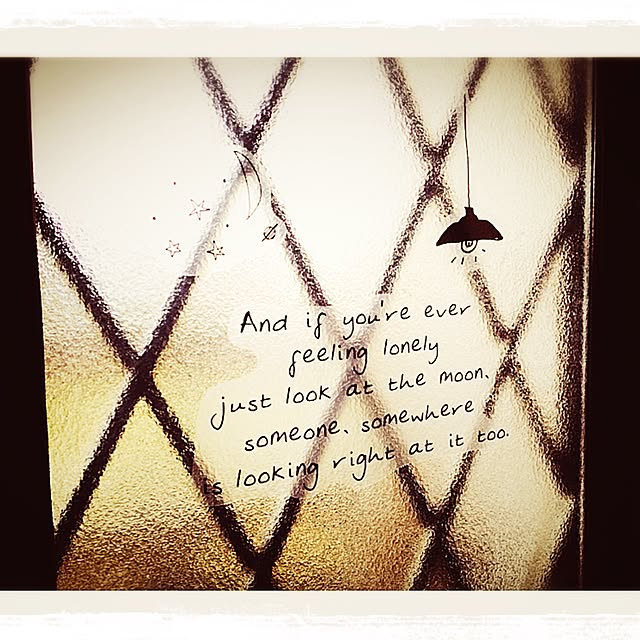 And if you're ever
feeling lonely
just look at the moon.
someone, somewhere
is looking right at it too.